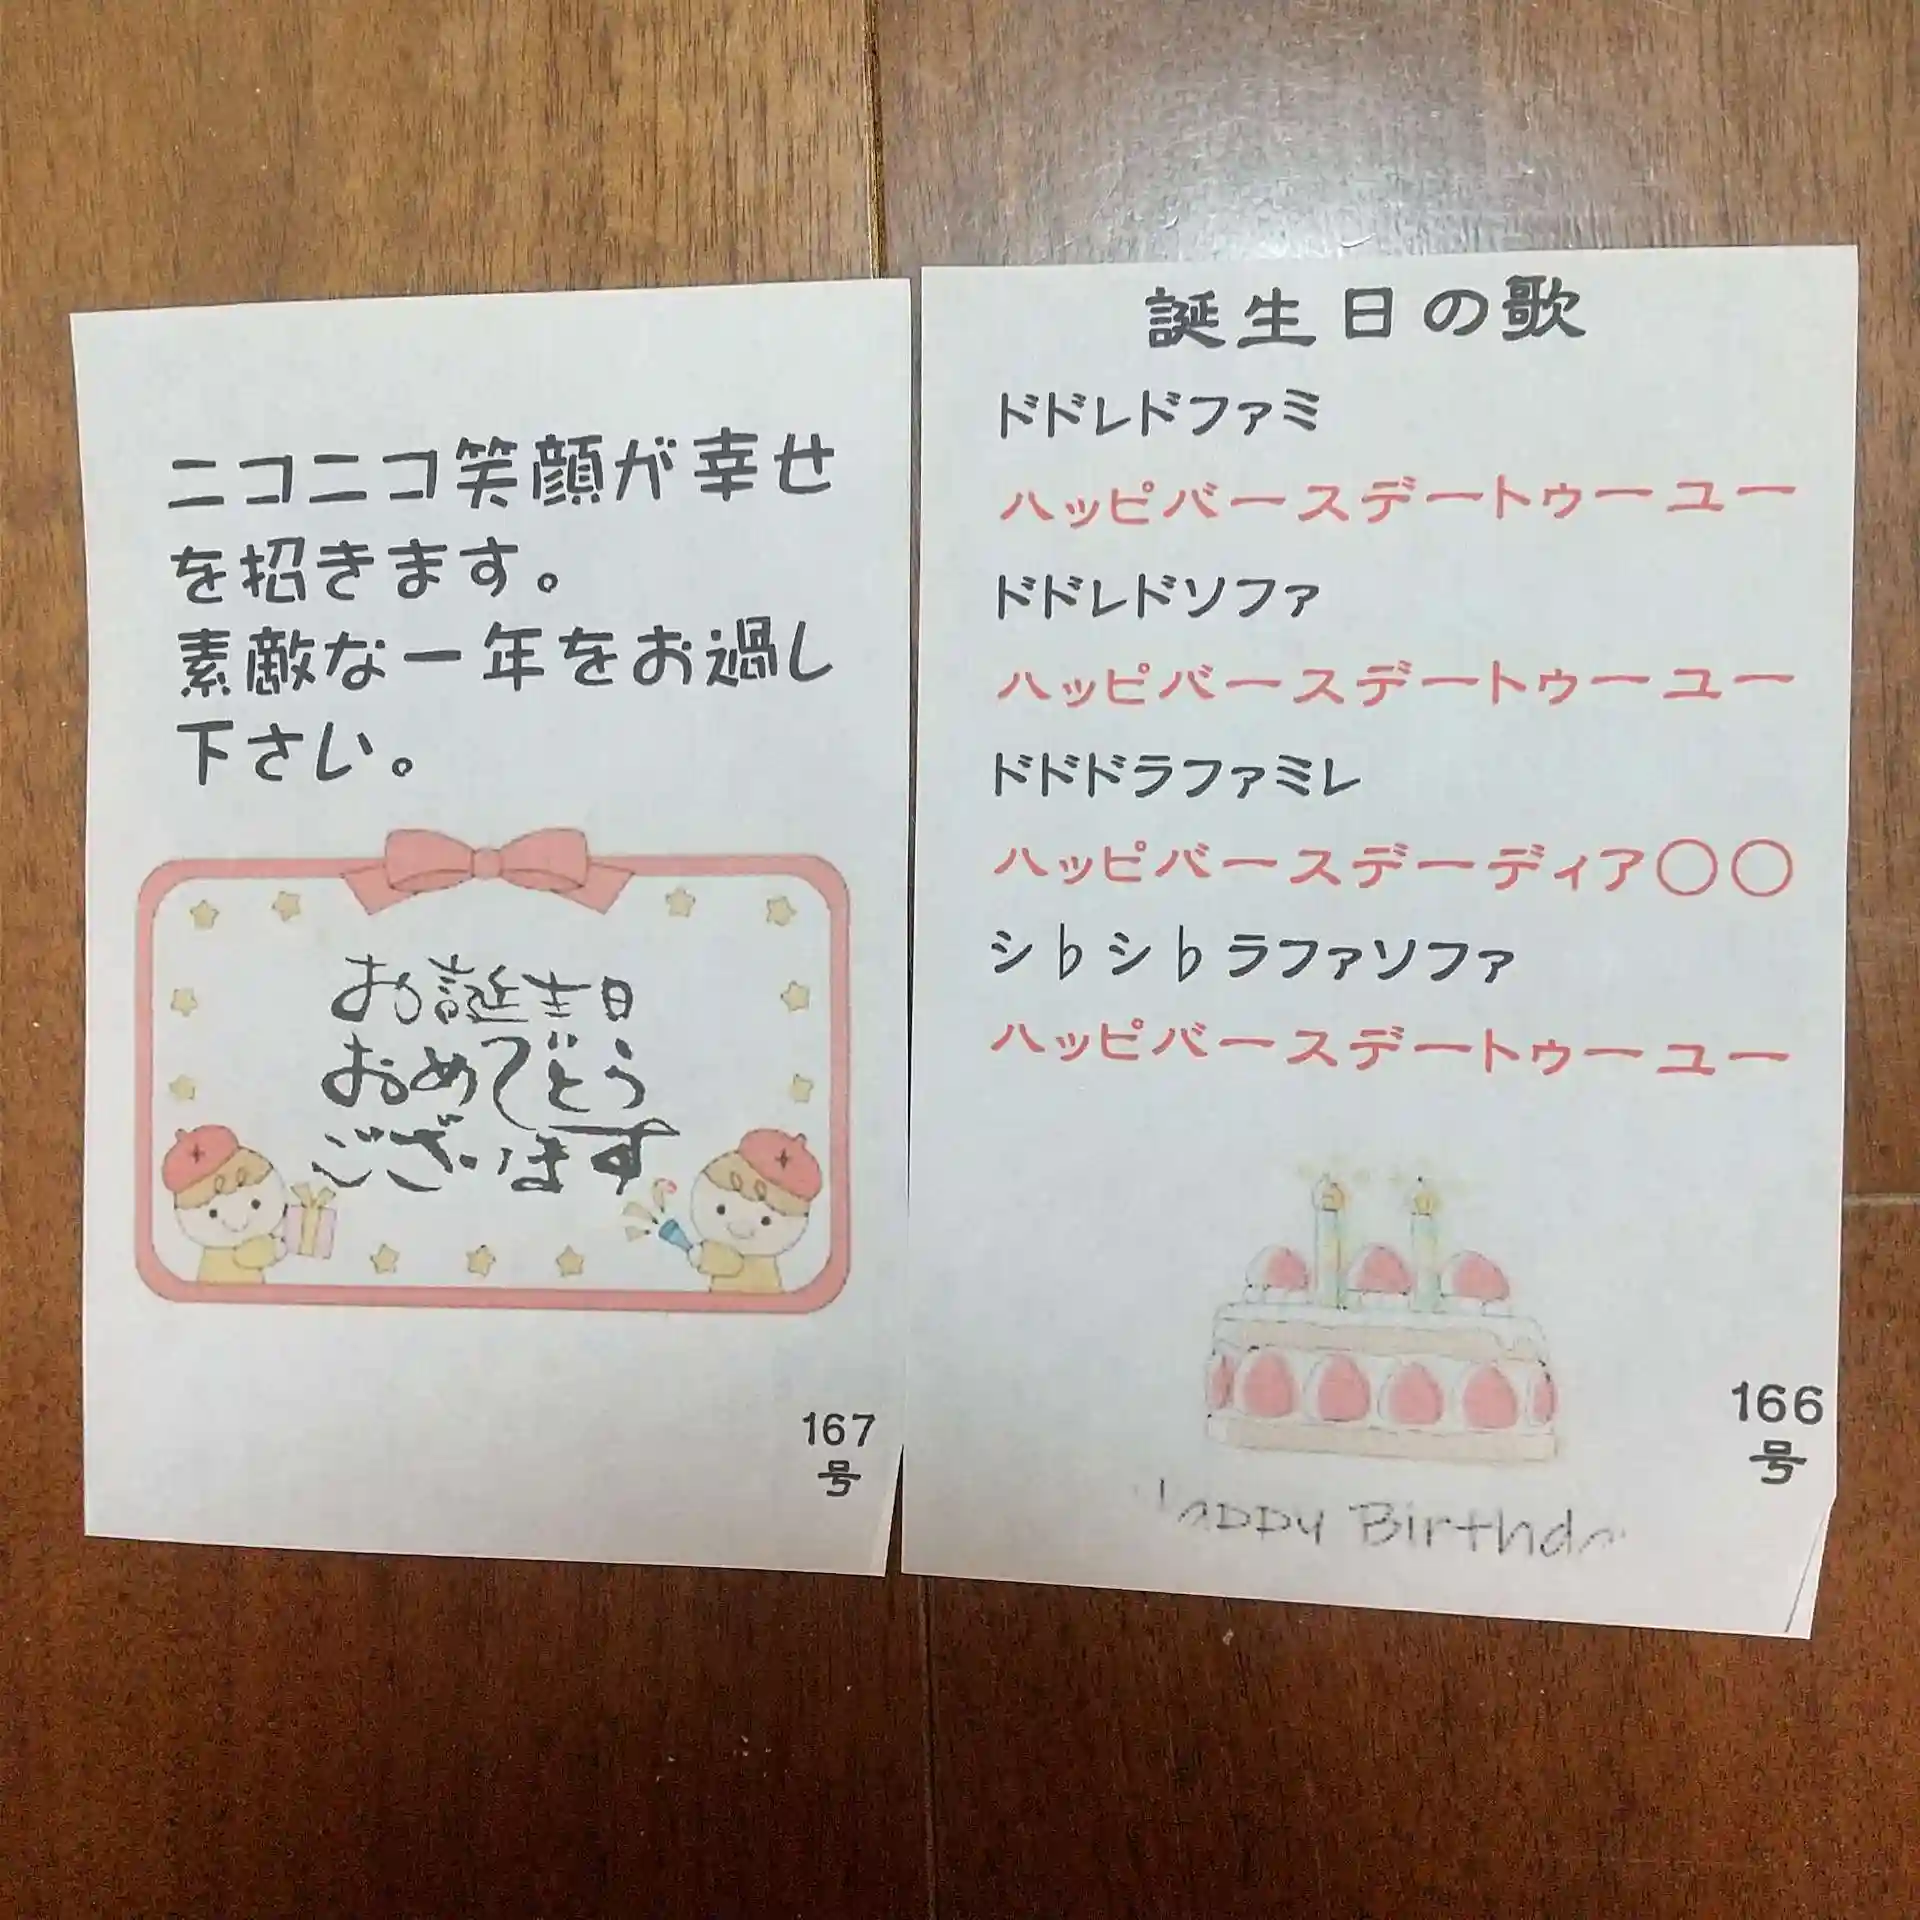 ニコニコ笑顔が幸せ
を招きます。
素敵な一年をお過し
下さい。
お誕生日
おめでとう
ございます
167
号
誕生日の歌
ドドレドファミ
ハッピバースデートゥーユー
ドドレドソファ
ハッピバースデートゥーユー
ドドドラファミレ
ハッピバースデーディア〇〇
シ♭シ♭ラファソファ
ハッピバースデートゥーユー
166
号
Happy Birthda